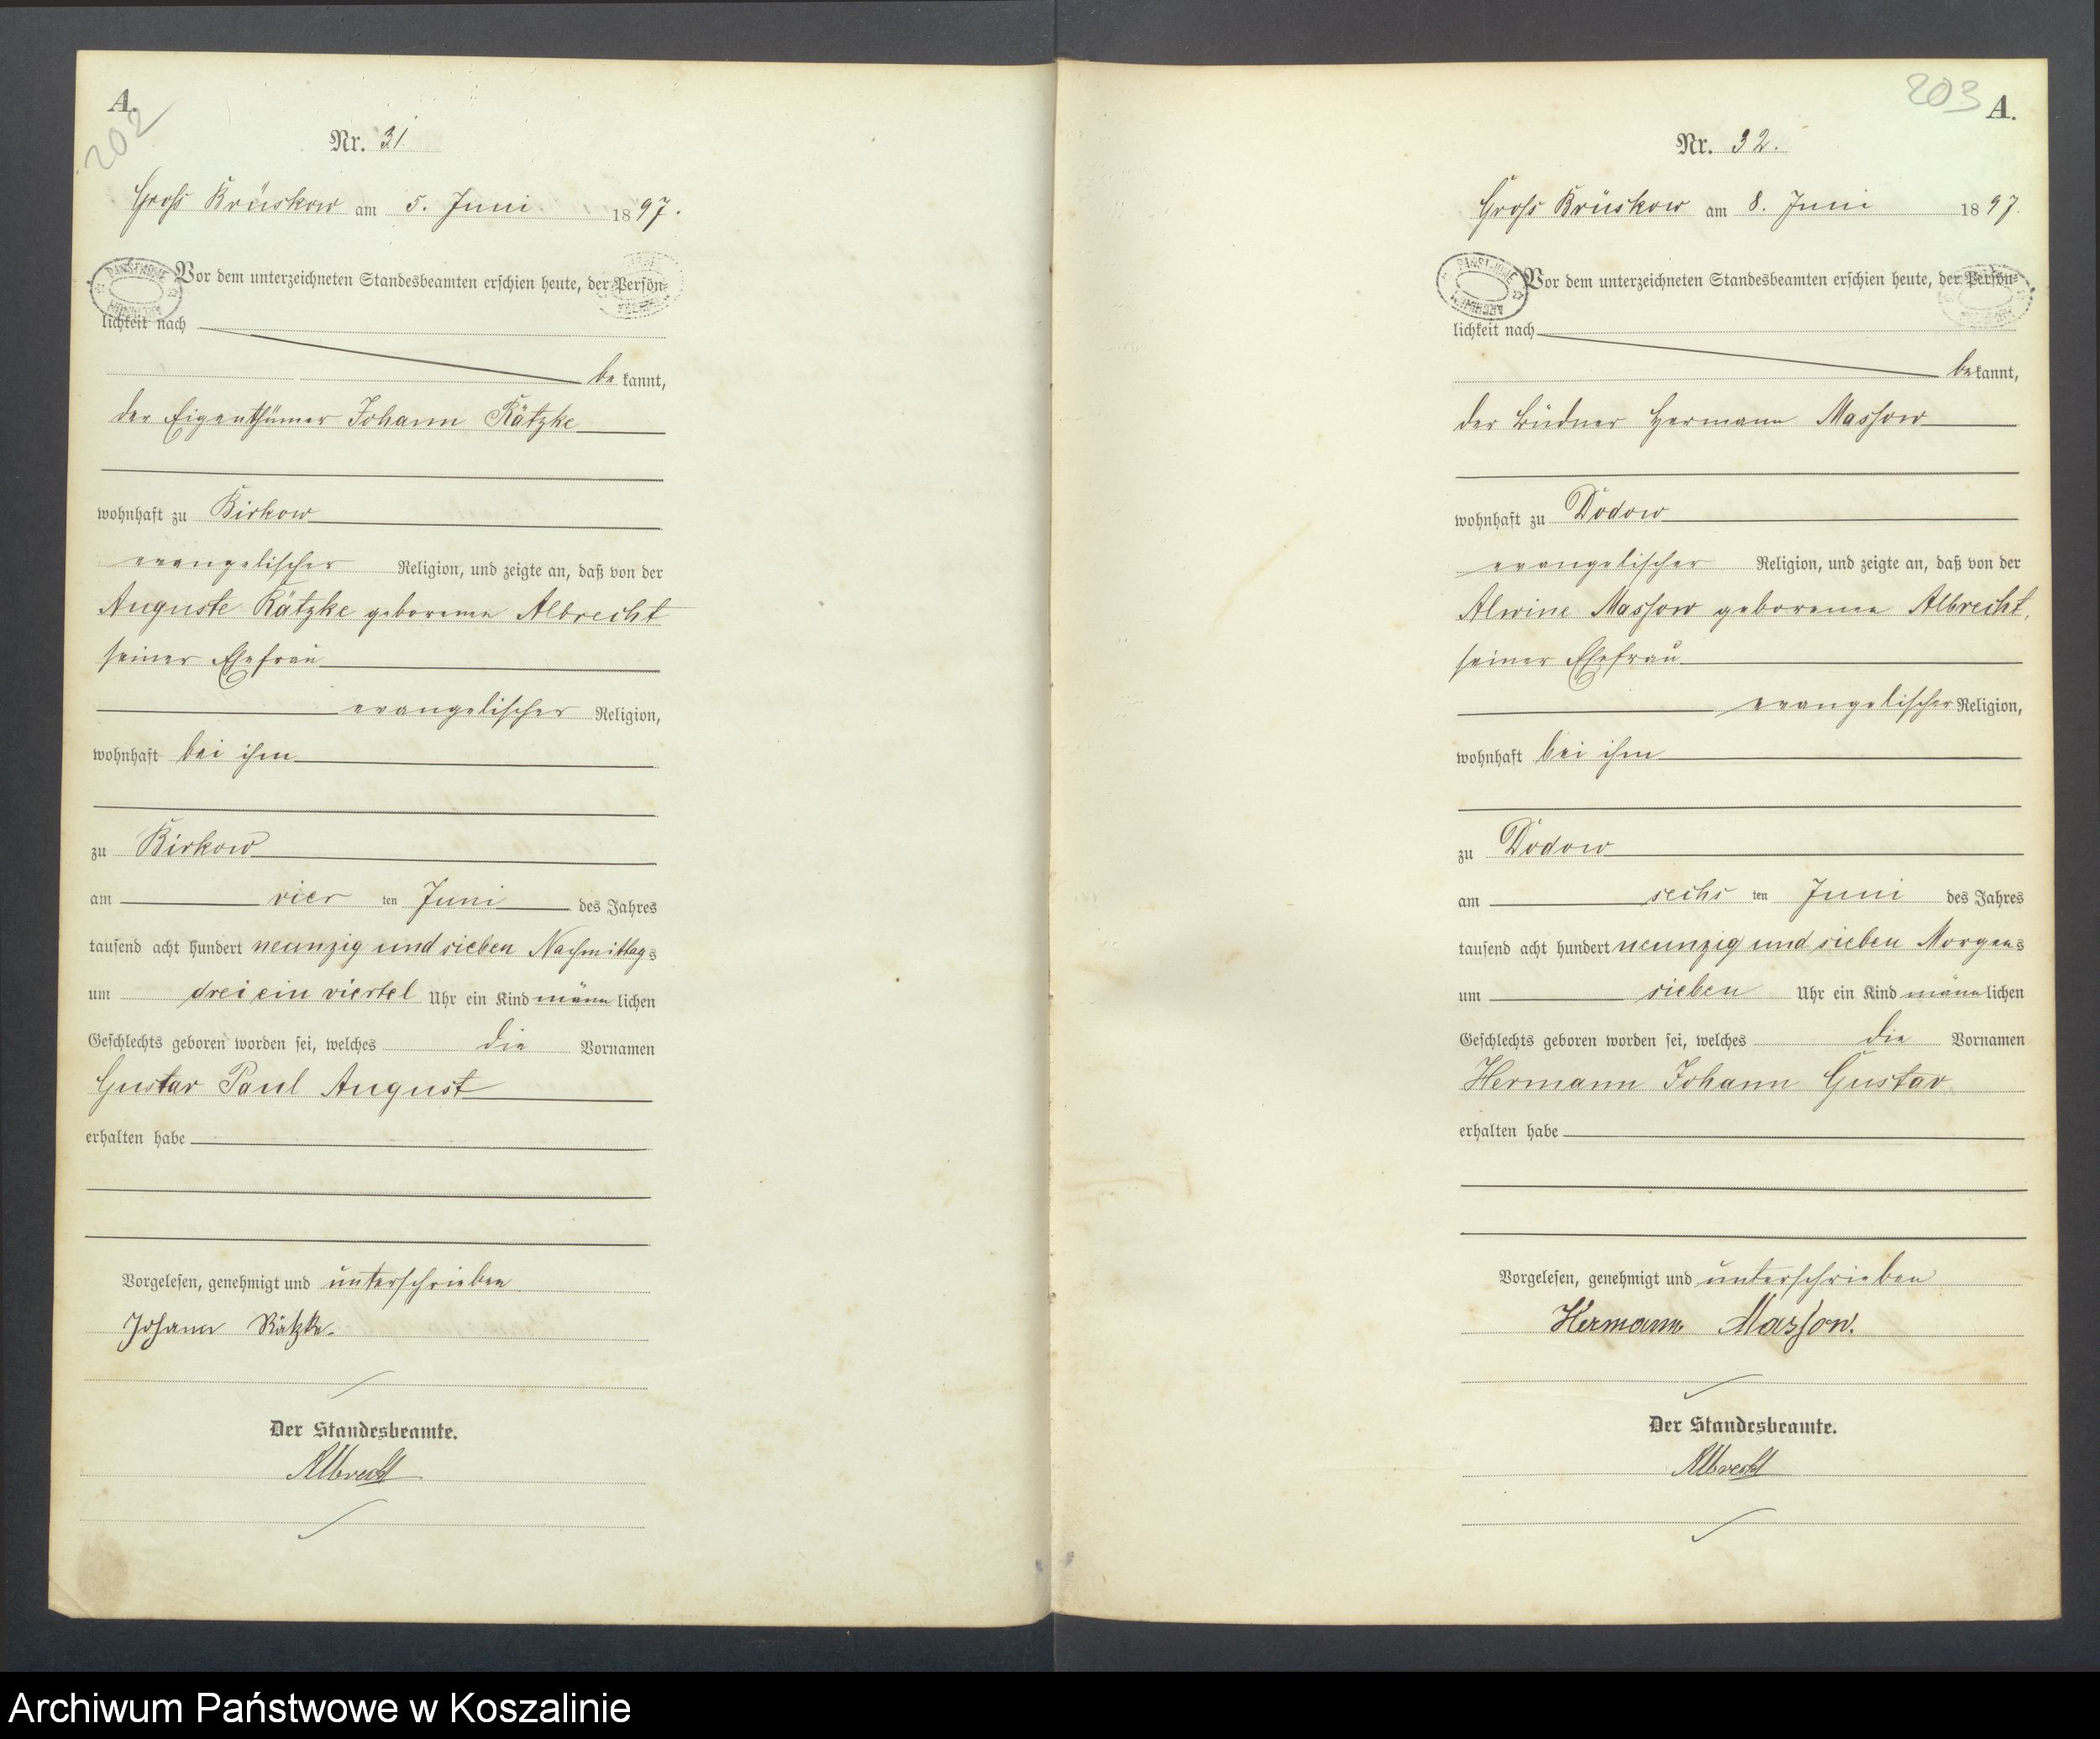 A.
202
Nr. 31
Gross Brüskow am 5. Juni 1897.
Vor dem unterzeichneten Standesbeamten erschien heute, der Persön-
lichkeit nach
bekannt,
der Eigenthümer Johann Rätzke
wohnhaft zu Birkow
evangelischer Religion, und zeigte an, daß von der
Auguste Rätzke geborenen Albrecht
seiner Ehefrau
evangelischer Religion,
wohnhaft bei ihm
zu Birkow
am vier ten Juni des Jahres
tausend acht hundert neunzig und sieben Nachmittags
um drei ein viertel Uhr ein Kind männlichen
Geschlechts geboren worden sei, welches die Vornamen
Gustav Paul August
erhalten habe
Vorgelesen, genehmigt und unterschrieben
Johann Rätzke.
Der Standesbeamte.
Albrecht
203
A.
Nr. 32.
Gross Brüskow am 8. Juni 1897.
Vor dem unterzeichneten Standesbeamten erschien heute, der Persön-
lichkeit nach
bekannt,
der Büdner Hermann Massow
wohnhaft zu Dodow
evangelischer Religion, und zeigte an, daß von der
Alwine Massow geborenen Albrecht,
seiner Ehefrau
evangelischer Religion,
wohnhaft bei ihm
zu Dodow
am sechs ten Juni des Jahres
tausend acht hundert neunzig und sieben Morgens
um sieben Uhr ein Kind männlichen
Geschlechts geboren worden sei, welches die Vornamen
Hermann Johann Gustav
erhalten habe
Vorgelesen, genehmigt und unterschrieben
Hermann Massow.
Der Standesbeamte.
Albrecht
Archiwum Państwowe w Koszalinie